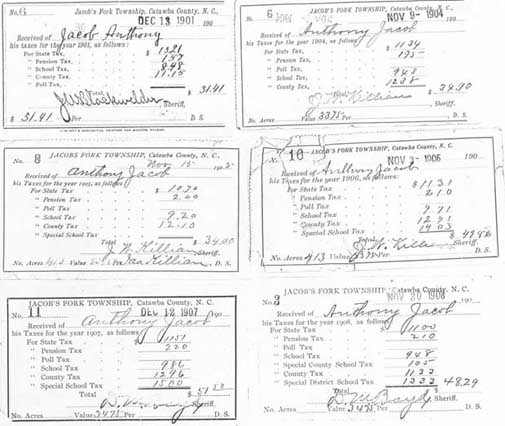 No. 6 Jacob's Fork Township, Catawba County, N. C.,
DEC 13 1901 190
Received of Jacob Anthony
his taxes for the year 1901, as follows:
For State Tax, $ 1321
" Pension Tax, 157
" Poll Tax,
" School Tax, 848
" County Tax, 11.15
" Poll Tax,
Total $ 31.41
Sheriff.
$ 31.41 Per D. S.
6 NOV 9- 1904
Received of Anthony Jacob
his taxes for the year 1904, as follows:
For State Tax, $ 1134
" Pension Tax,
" Poll Tax,
" School Tax, 945
" County Tax, 1238
$ 34.90
J. W. Killian
Sheriff.
Value 3375 Per D. S.
No. 8 JACOBS FORK TOWNSHIP, Catawba County, N. C.,
Nov 15
Received of Anthony Jacob
his Taxes for the year 1905, as follows:
For State Tax $ 1070
" Pension Tax 200
" Poll Tax
" School Tax 9.20
" County Tax 12.10
" Special School Tax
Total $ 34.00
J. W. Killian Sheriff.
No. Acres 413 Value Killian D. S.
No. 10 JACOB'S FORK TOWNSHIP, Catawba County, N. C.
NOV 3- 1906 190
Received of Anthony Jacob
his Taxes for the year 1906, as follows:
For State Tax $ 1131
" Pension Tax 210
" Poll Tax
" School Tax 971
" County Tax 1271
" Special School Tax 1403
Total $ 4986
J. W. Killian Sheriff.
No. Acres 413 Value Per D. S.
JACOB'S FORK TOWNSHIP, Catawba County, N. C.
No. 11 DEC 12 1907 190
Received of Anthony Jacob
his Taxes for the year 1907, as follows:
For State Tax $ 1151
" Pension Tax 220
" Poll Tax
" School Tax 986
" County Tax 1296
" Special School Tax 1500
Total $ 51 53
Sheriff.
No. Acres Value 3475 Per D. S.
JACOB'S FORK TOWNSHIP, Catawba County, N. C.
No. 3 NOV 30 1908 190
Received of Anthony Jacob
his Taxes for the year 1908, as follows:
For State Tax $ 1100
" Pension Tax 210
" Poll Tax
" School Tax 948
" Special County School Tax 105
" County Tax 1133
" Special District School Tax 1333 4829
Total $
D. M. Boyd Sheriff.
No. Acres Value 3475 Per D. S.